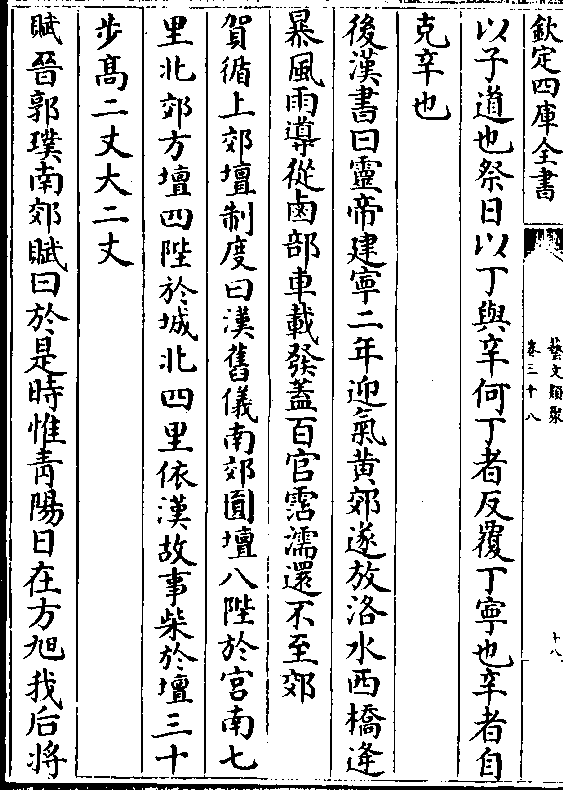 欽定四庫全書
藝文類聚
卷三十八
十八
以子道也祭日以丁與辛何丁者反覆丁寧也辛者自
克辛也
後漢書曰靈帝建寧二年迎氣黃郊遂放洛水西橋逢
暴風雨導從鹵部車載發蓋百官霑濡還不至郊
賀循上郊壇制度曰漢舊儀南郊圓壇八陛於宮南七
里北郊方壇四陛於城北四里依漢故事柴於壇三十
步髙二丈大二丈
賦晉郭璞南郊賦曰於是時惟青陽日在方旭我后将